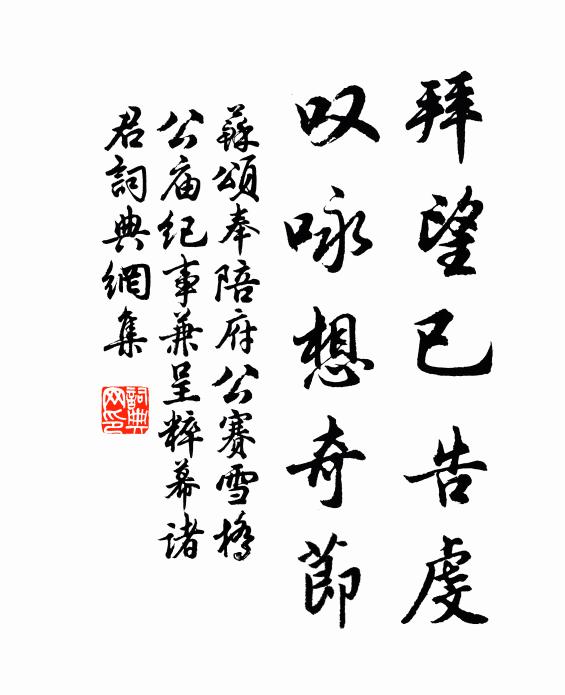 拜望已告虔
叹咏想奇莭
蘇頌奉陪府公賽雪橋
公庙纪事兼呈粹幕诸
君詞典網集
詞典
网印